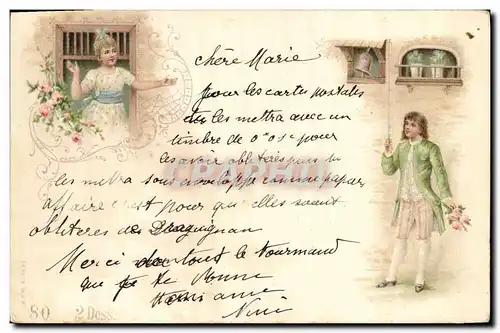 chère Marie
pour les cartes postales
tu les mettra avec un
timbre de 0.05c pour
les avoir oblitérés puis tu
les mettra sous enveloppe comme papier
affaire c'est pour qu'elles soient
obliteres de Draguignan
Merci le Normand
que je te donne
ton amie
Nini
80 2 Dess.